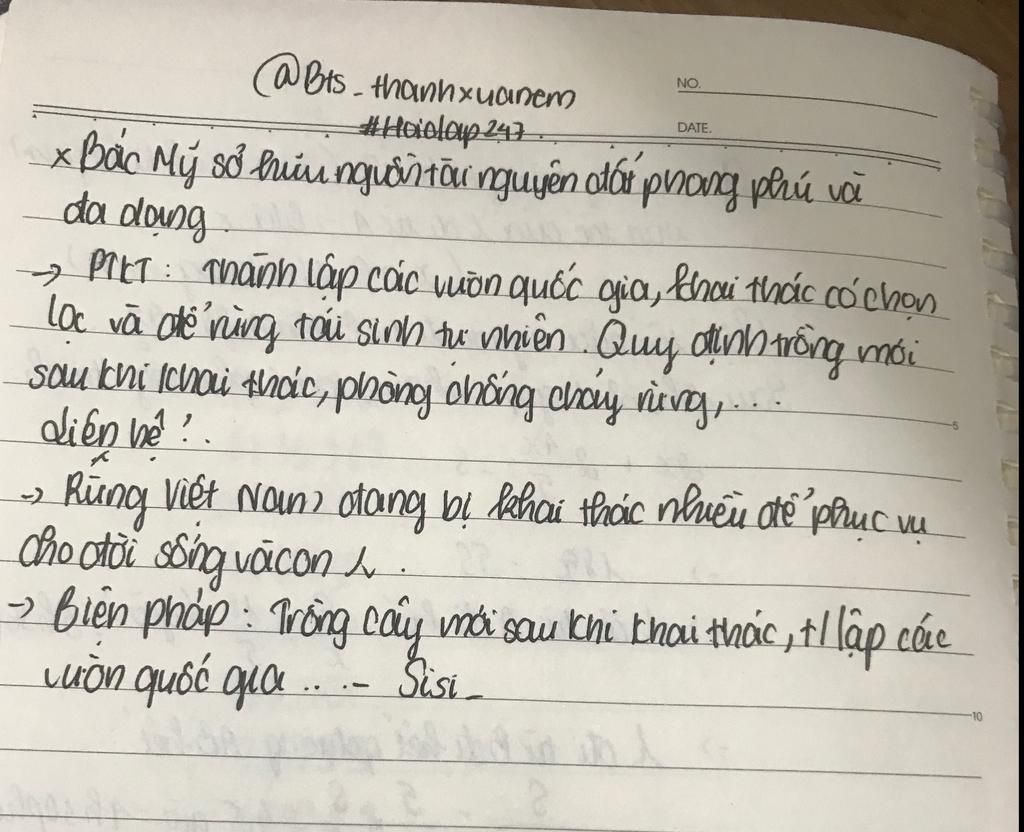 @Bts_thanhxuanem
NO.
#Hoidap247.
DATE.
x Bắc Mỹ sở hữu nguồn tài nguyên đất phong phú và
đa dạng.
→ PTKT: Thành lập các vườn quốc gia, khai thác có chọn
lọc và để rừng tái sinh tự nhiên. Quy định trồng mới
sau khi khai thác, phòng chống cháy rừng,...
liên hệ:
→ Rừng Việt Nam đang bị khai thác nhiều để phục vụ
cho đời sống và con
→ Biện pháp: Trồng cây mới sau khi khai thác, t/lập các
vườn quốc gia ...- Sisi_
5
10